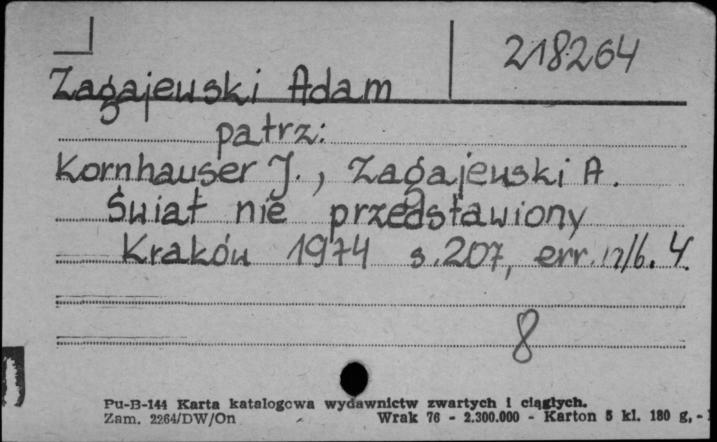 218264
Zagajewski Adam
patrz:
Kornhauser J., Zagajewski A.
Świat nie przedstawiony
Kraków 1974 s. 207, err.
8
Pu-B-144 Karta katalogowa wydawnictw zwartych i ciągłych.
Zam. 2264/DW/On Wrak 76 - 2.300.000 - Karton 5 kl. 180 g,